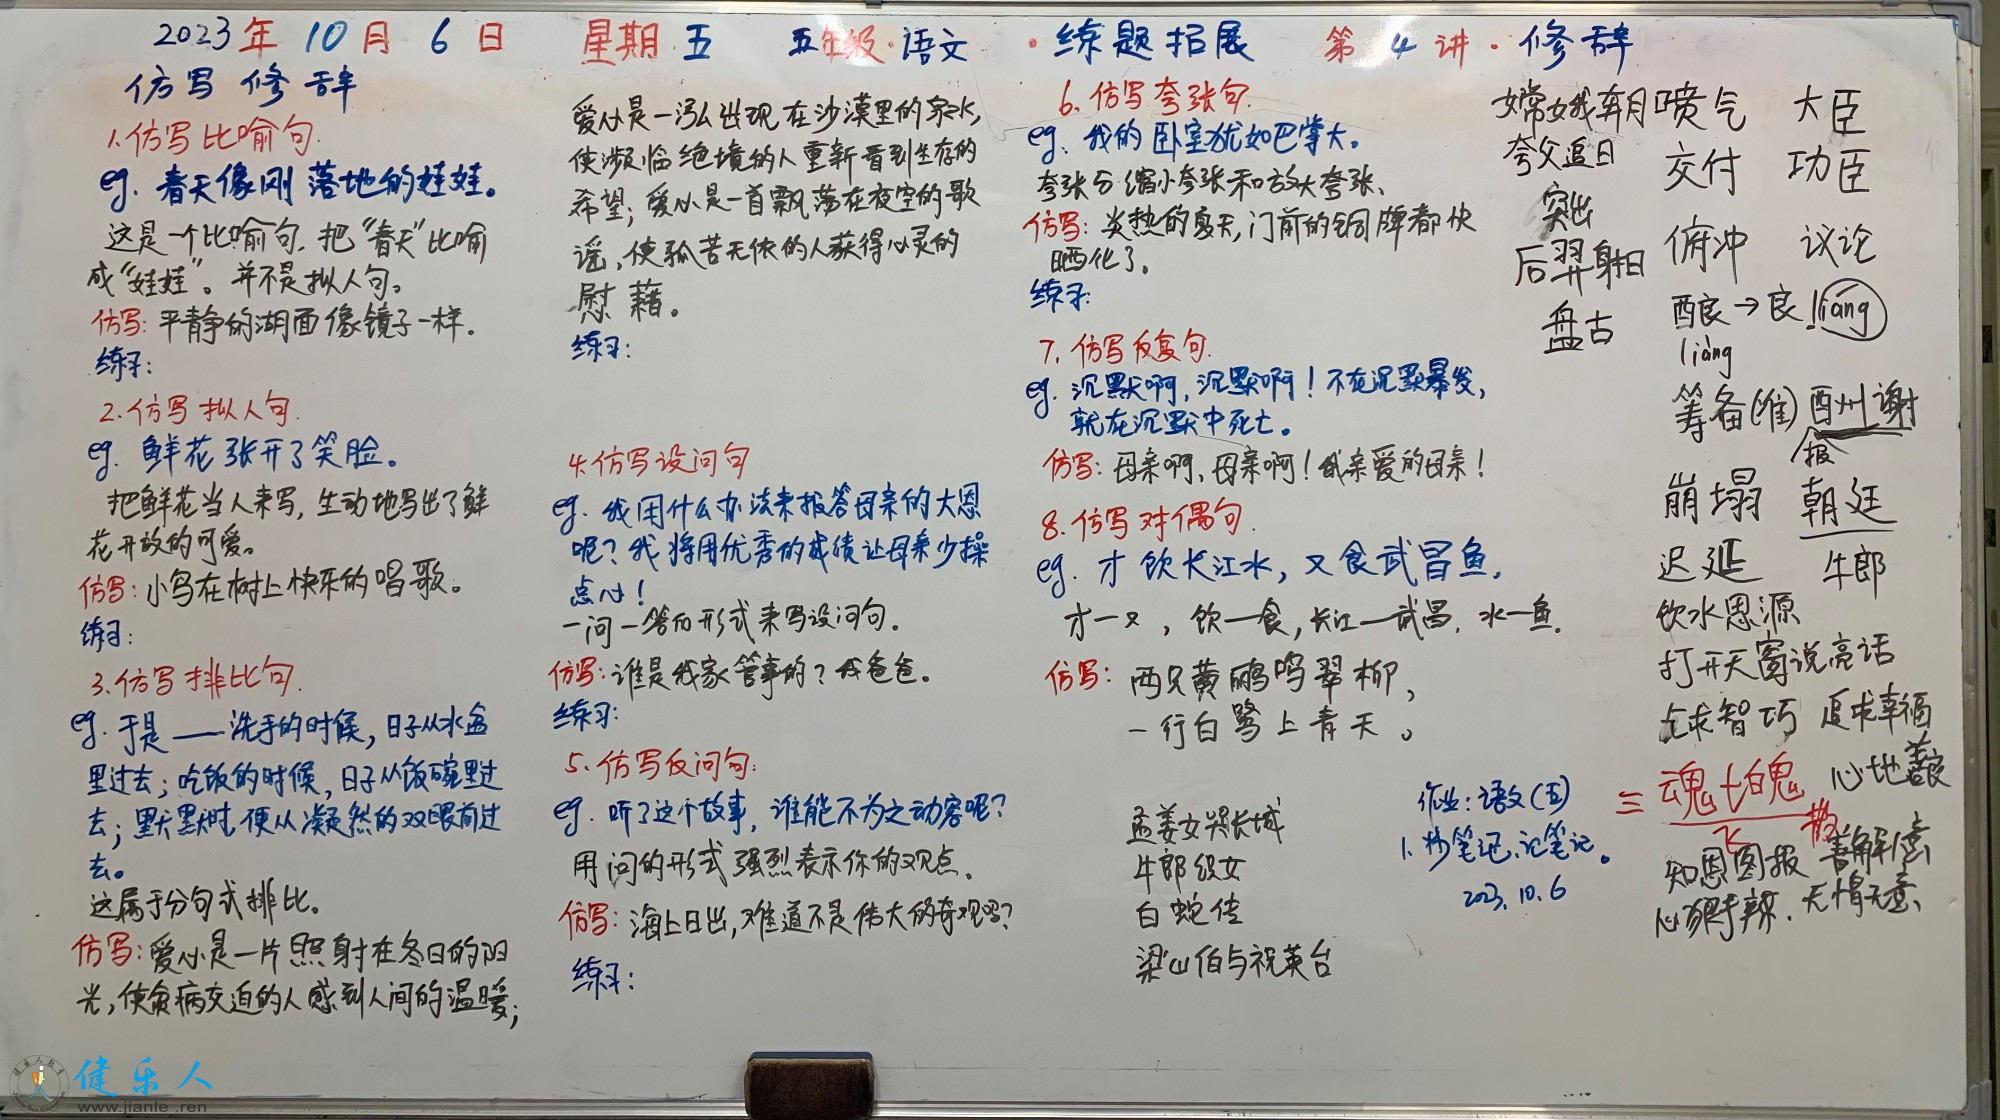 2023年10月6日 星期五 五年级·语文·练题拓展 第4讲·修辞
仿写修辞
1.仿写比喻句.
eg.春天像刚落地的娃娃。
这是一个比喻句.把"春天"比喻
成"娃娃"。并不是拟人句。
仿写:平静的湖面像镜子一样.
练习:
2.仿写拟人句.
eg.鲜花张开了笑脸。
把鲜花当人来写,生动地写出了鲜
花开放的可爱。
仿写:小鸟在树上快乐的唱歌。
练习:
3.仿写排比句.
eg.于是——洗手的时候,日子从水盆
里过去;吃饭的时候,日子从饭碗里过
去;默默时,便从凝然的双眼前过
去。
这属于分句式排比。
仿写:爱心是一片照射在冬日的阳
光,使贫病交迫的人感到人间的温暖;
爱心是一泓出现在沙漠里的泉水,
使濒临绝境的人重新看到生存的
希望;爱心是一首飘荡在夜空的歌
谣,使孤苦无依的人获得心灵的
慰藉。
练习:
4.仿写设问句
eg.我用什么办法来报答母亲的大恩
呢?我将用优秀的成绩让母亲少操
点心!
一问一答的形式来写设问句。
仿写:谁是我家管事的?我爸爸。
练习:
5.仿写反问句:
eg.听了这个故事,谁能不为之动容呢?
用问的形式强烈表示你的观点.
仿写:海上日出,难道不是伟大的奇观吗?
练习:
6.仿写夸张句.
eg.我的卧室犹如巴掌大。
夸张分缩小夸张和放大夸张、
仿写:炎热的夏天,门前的铜牌都快
晒化了。
练习:
7.仿写反复句.
eg.沉默啊,沉默啊!不在沉默暴发,
就在沉默中死亡。
仿写:母亲啊,母亲啊!我亲爱的母亲!
8.仿写对偶句.
eg.才饮长江水,又食武昌鱼.
才一又,饮一食,长江一武昌.水一鱼.
仿写:两只黄鹂鸣翠柳,
一行白鹭上青天。
孟姜女哭长城
牛郎织女
白蛇传
梁山伯与祝英台
作业:语文(五)
1.抄笔记、记笔记。
2023.10.6
嫦娥奔月
夸父追日
突出
后羿射日
盘古
喷气 大臣
交付 功臣
俯冲 议论
酿→良liáng
liàng
筹备(准)酬谢
报
崩塌 朝廷
迟延 牛郎
饮水思源
打开天窗说亮话
乞求智巧 追求幸福
三魂七魄 心地善良
飞 散
知恩图报 善解人意
无情无意